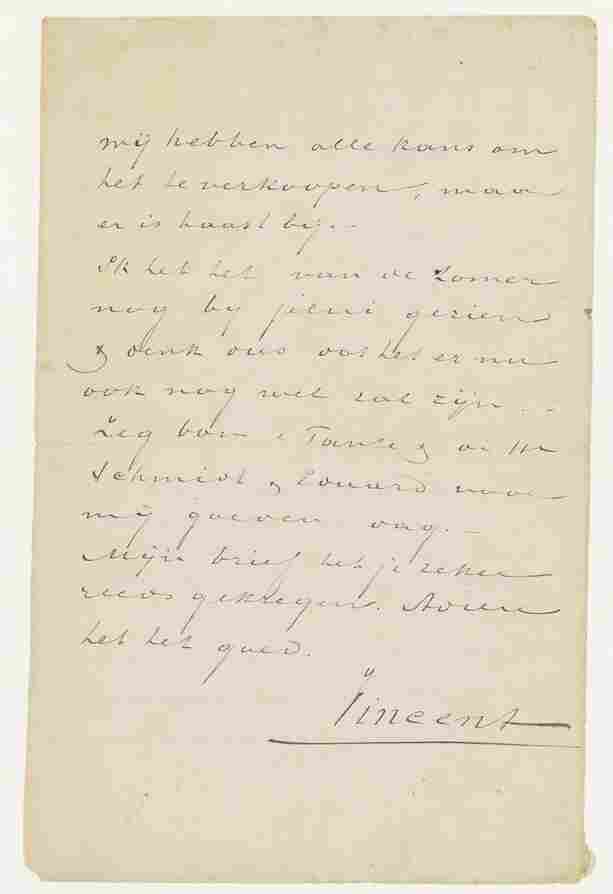 wij hebben alle kans om
het te verkoopen, maar
er is haast bij.–
Ik heb het van de Zomer
nog bij gezien
& denk dus dat het er nu
ook nog wel zal zijn...
Zeg Oom & Tante & de Hr
Schmidt & Eduard voor
mij goeden dag.–
Mijn brief heb je zeker
reeds gekregen. Adieu
heb het goed.
Vincent